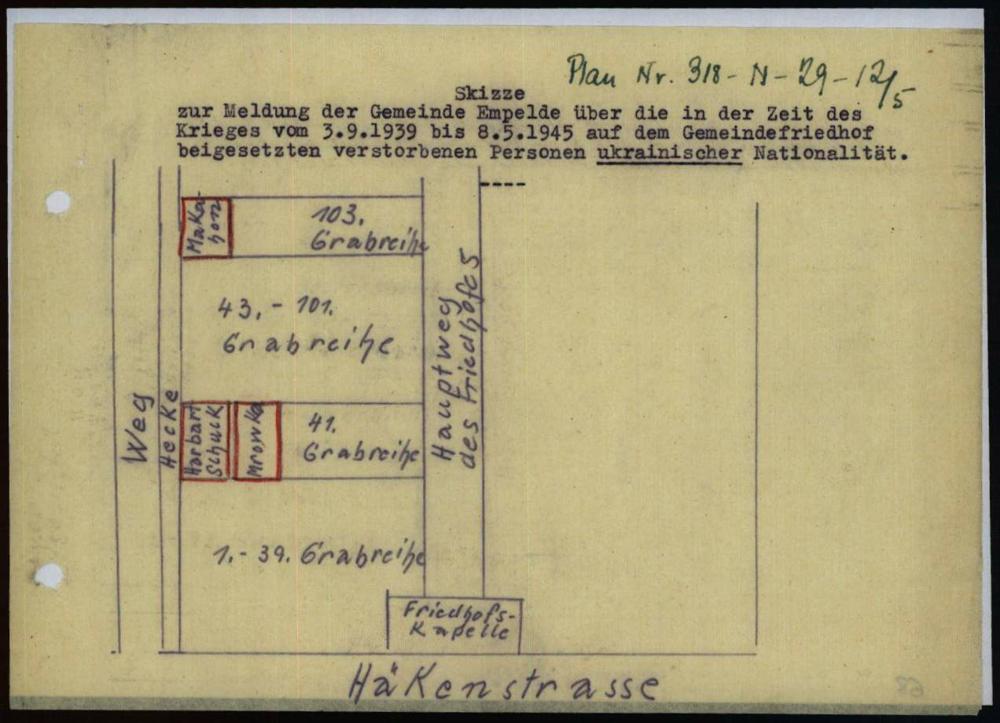 Plan Nr. 318-N-29-12/5
Skizze
zur Meldung der Gemeinde Empelde über die in der Zeit des
Krieges vom 3.9.1939 bis 8.5.1945 auf dem Gemeindefriedhof
beigesetzten verstorbenen Personen ukrainischer Nationalität.
----
Maka-
hon
103.
Grabreihe
43. - 101.
Grabreihe
Hauptweg
des Friedhofes
Weg
Hecke
Harbart
Schuck
Mrowka
41.
Grabreihe
1. - 39. Grabreihe
Friedhofs-
Kapelle
Häkenstrasse